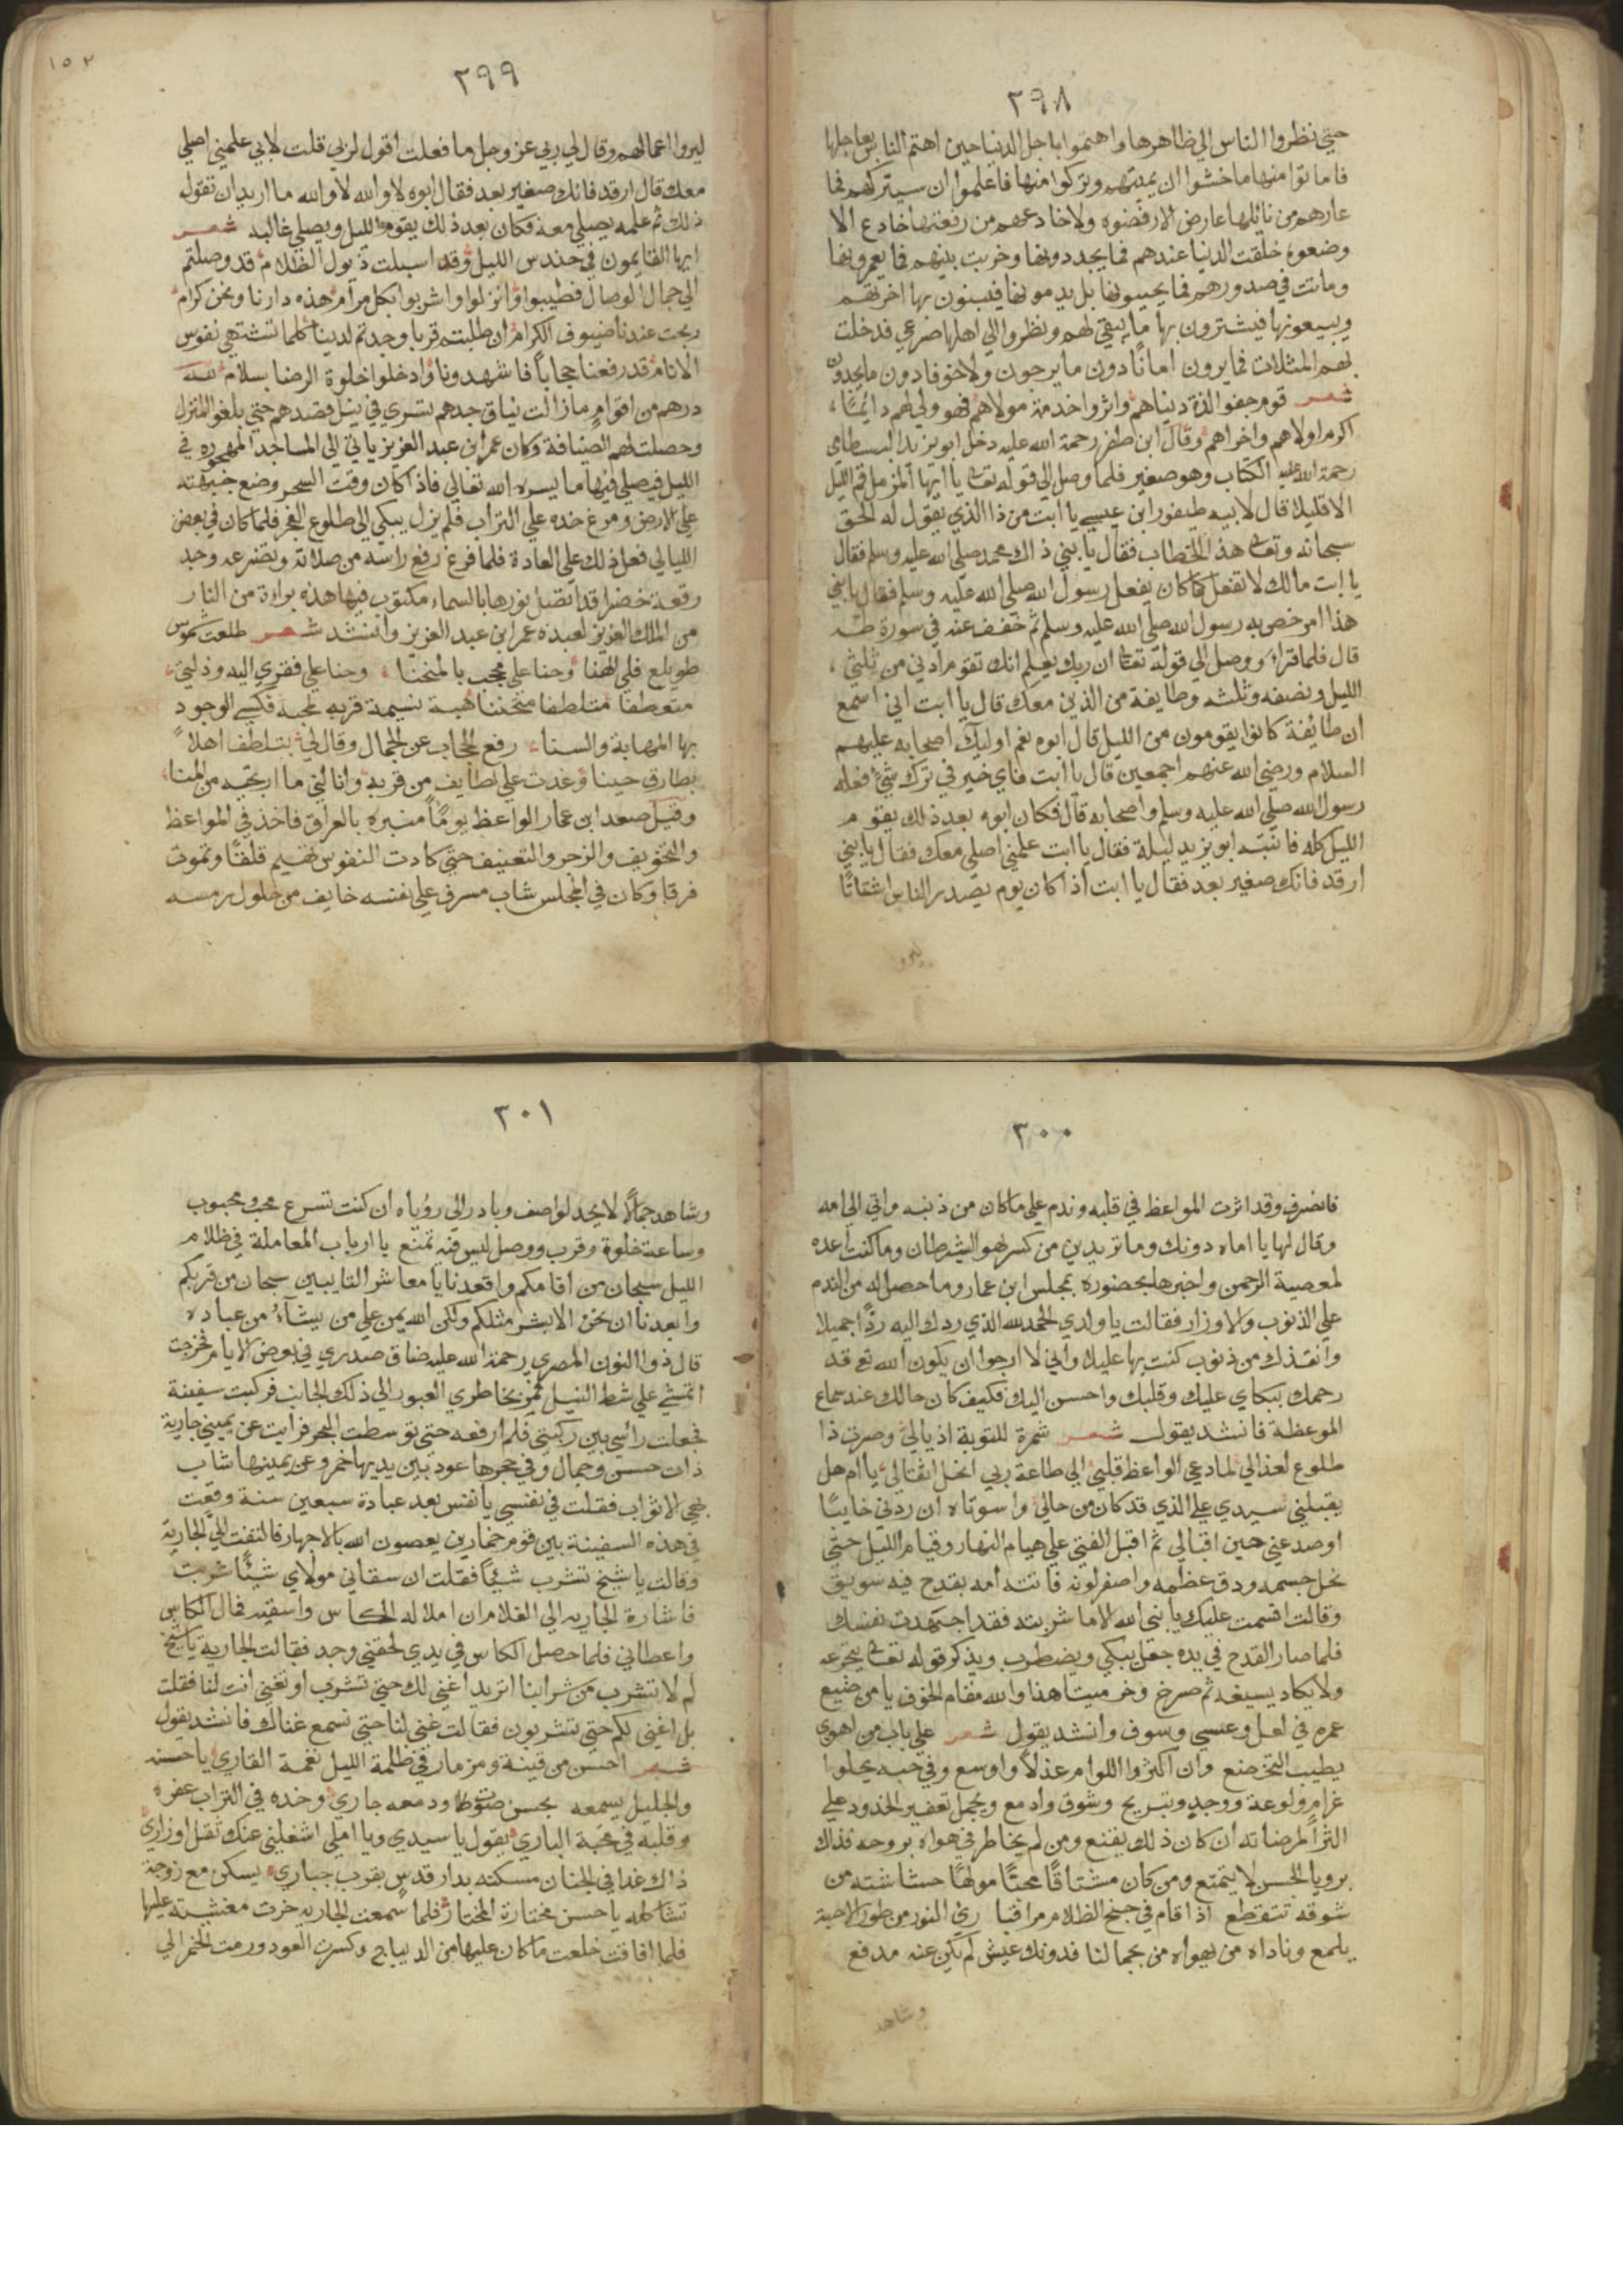 ٢٩٨
حتي نظروا الناس الي ظاهرها واهتموا باجل الدنيا حين اهتم الناس بعاجلها
فاماتوا منها ما خشوا ان يميتهم وتركوا منها فاعلموا ان سيتركهم فما
عارهم من نائلها عارض الا رفضوه ولا خادعهم من رفعتها خادع الا
وضعوه خلقت الدنيا عندهم فما يجددونها وخربت بينهم فما يعمرونها
وماتت في صدورهم فما يحيونها بل يدمونها فيبنون بها اخرتهم
ويبيعونها فيشترون بها ما يبقي لهم ونظروا الي اهلها صرعي قد خلت
بهم المثلات فما يرون امانا دون ما يرجون ولا خوفا دون ما يجدون
شعر قوم جفوا لذة دنياهم واثروا خدمة مولاهم فهو ولي لهم دائما
اكرم اولاهم واخراهم وقال ابن ظفر رحمة الله عليه دخل ابو يزيد البسطامي
رحمة الله عليه الكتاب وهو صغير فلما وصل الي قوله تعالى يا ايها المزمل قم الليل
الا قليلا قال لابيه طيفور ابن عيسي يا ابت من ذا الذي يقول له الحق
سبحانه وتعالى هذا الخطاب فقال يا بني ذاك محمد صلي الله عليه وسلم فقال
يا ابت مالك لا تفعل كما كان يفعل رسول الله صلي الله عليه وسلم فقال يا بني
هذا امر خص به رسول الله صلي الله عليه وسلم ثم خفف عنه في سورة طه
قال فلما قراء ووصل الي قوله تعالى ان ربك يعلم انك تقوم ادني من ثلثي
الليل ونصفه وثلثه وطايفة من الذين معك قال يا ابت اني اسمع
ان طائفة كانوا يقومون من الليل قال ابوه نعم اوليك اصحابه عليهم
السلام ورضي الله عنهم اجمعين قال يا ابت فاي خير في ترك شئ فعله
رسول الله صلي الله عليه وسلم واصحابه قال فكان ابوه بعد ذلك يقوم
الليل كله فانتبه ابو يزيد ليلة فقال يا ابت علمني اصلي معك فقال يا بني
ارقد فانك صغير بعد فقال يا ابت اذا كان يوم يصدر الناس اشتاتا
ليروا
١٥٢
٢٩٩
ليروا اعمالهم وقال لي ربي عز وجل ما فعلت اقول لربي قلت لابي علمني اصلي
معك قال ارقد فانك صغير بعد فقال ابوه لا والله لا والله ما اريد ان تقول
ذلك ثم علمه يصلي معه فكان بعد ذلك يقوم الليل ويصلي غالبه شعر
ايها القايمون في حندس الليل وقد اسبلت ذيول الظلام قد وصلتم
الي جمال الوصال فطيبوا وانزلوا واشربوا بكل مرام هذه دارنا ونحن كرام
ربحت عندنا ضيوف الكرام ان طلبتم قربا وجدتم لدينا كلما تشتهي نفوس
الانام قد رفعنا حجابا فاشهدونا وادخلوا خلوة الرضا بسلام لله
درهم من اقوام ما زالت نياق جدهم تسري في نيل قصدهم حتي بلغوا المنزل
وحصلت لهم الضيافة وكان عمر ابن عبد العزيز ياتي الي المساجد المهجوره في
الليل فيصلي فيها ما يسره الله تعالي فاذا كان وقت السحر وضع جبهته
علي الارض ومرغ خده علي التراب فلم يزل يبكي الي طلوع الفجر فلما كان في بعض
الليالي فعل ذلك علي العادة فلما فرغ رفع راسه من صلاته وتضرعه وجد
رقعة خضرا قد اتصل نورها بالسماء مكتوب فيها هذه براءة من النار
من الملك العزيز لعبده عمر ابن عبد العزيز وانشد شعر طلعت شموس
طويلع فلي الهنا وحنا علي محجب بالمنحنا وحنا علي فقري اليه وذلتي
متعطفا متلطفا متحننا هبة نسيمة قربه لمحبه فكسي الوجود
بها المهابة والسناء رفع الحجاب عن الجمال وقال لي بتلطف اهلا
بطارق حينا وغدت علي لطايف من قربه وانالني ما ارتجيه من المنا
وقيل صعد ابن عمار الواعظ يوما منبره بالعراق فاخذ في المواعظ
والتخويف والزجر والتعنيف حتي كادت النفوس تهيم قلقا وتموت
فرقا وكان في المجلس شاب مسرف علي نفسه خايف من حلول رمسه
٣٠٠
فانصرف وقد اثرت المواعظ في قلبه وندم علي ما كان من ذنبه واتي الي امه
وقال لها يا اماه دونك وما تريدين من كسر لهو الشيطان وما كنت اعده
لمعصية الرحمن واخبرها بحضوره بمجلس ابن عمار وما حصل له من الندم
علي الذنوب والاوزار فقالت يا ولدي الحمد لله الذي ردك اليه ردا جميلا
وانقذك من ذنوب كنت بها عليك واني لا ارجوا ان يكون الله تع قد
رحمك ببكاي عليك وقلبك واحسن اليك فكيف كان حالك عند سماع
الموعظة فانشد يقول شعر شمرة للتوبة اذيالي وصرت ذا
طلوع لعذالي لما دعي الواعظ قلبي الي طاعة ربي انحل اثقالي يا ام هل
يقبلني سيدي علي الذي قد كان من حالي وا سوتاه ان ردني خايبا
او صد عني حين اقبالي ثم اقبل الفتي علي صيام النهار وقيام الليل حتي
نحل جسمه ودق عظمه واصفر لونه فاتته امه بقدح فيه سويق
وقالت اقسمت عليك يا بني الله الا ما شربته فقد اجتهدت نفسك
فلما صار القدح في يده جعل يبكي ويضطرب ويذكر قوله تعالى يتجرعه
ولا يكاد يسيغه ثم صرخ وخر ميتا هذا والله مقام الخوف يا من ضيع
عمره في لعل وعسي وسوف وانشد يقول شعر علي باب من اهوي
يطيب التخضع وان اكثروا اللوام عذلا واوسع وفي حبه يحلوا
غرام ولوعة ووجد وتبريح وشوق وادمع ويجمل تعفير الخدود علي
الثرا لمرضاته ان كان ذلك يقنع ومن لم يخاطر في هواه بروحه فذاك
برويا الحسن لا يتمتع ومن كان مشتاقا محبا مولها حشاشته من
شوقه تتقطع اذا قام في جنح الظلام مراقبا راي النور من طور الاحبة
يلمع وناداه من يهواه من بجمالنا فدونك عيش لم يكن عنه مدفع
وشاهد
٣٠١
وشاهد جمالا لا يحد لواصف وبادر الي روياه ان كنت تسرع محب ومحبوب
وساعة خلوة وقرب ووصل ليس فيه تمنع يا ارباب المعاملة في ظلام
الليل سبحان من اقامكم واقعدنا يا معاشر التايبين سبحان من قربكم
وابعدنا ان نحن الا بشر مثلكم ولكن الله يمن علي من يشاء من عباده
قال ذوا النون المصري رحمة الله عليه ضاق صدري في بعض الايام فخرجت
اتمشي علي شط النيل فمر بخاطري العبور الي ذلك الجانب فركبت سفينة
فجعلت رأسي بين ركبتي فلم ارفعه حتي توسطت البحر فرايت عن يميني جارية
ذات حسن وجمال وفي حجرها عود بين يديها خمر وعن يمينها شاب
بهي الاثواب فقلت في نفسي يا نفس بعد عبادة سبعين سنة وقعت
في هذه السفينة بين قوم خمارين يعصون الله بالاجهار فالتفت الي الجارية
وقالت يا شيخ تشرب شيئا فقلت ان سقاني مولاي شيئا شربت
فاشارة الجاريه الي الغلام ان املا له الكاس واسقيه فمال الكاس
واعطاني فلما حصل الكاس في يدي لحقني وجد فقالت الجارية يا شيخ
لم لا تشرب من شرابنا اتريد اغني لك حتي تشرب او تغني انت لنا فقلت
بل اغني لكم حتي تشربون فقالت غني لنا حتي نسمع غناك فانشد يقول
شعر احسن من قينة ومزمار في ظلمة الليل نغمة القاري يا حسنه
والجليل يسمعه بحسن صوت ودمعه جاري وخده في التراب عفره
وقلبه في محبة الباري يقول يا سيدي ويا املي اشغلني عنك ثقل اوزاري
ذاك غدا في الجنان مسكنه بدار قدس بقرب جباري يسكن مع زوجة
تشاكله يا حسن مختارة المختار فلما سمعت الجاريه خرت مغشية عليها
فلما افاقت خلعت ما كان عليها من الديباج وكسرت العود ورمت الخمر الي